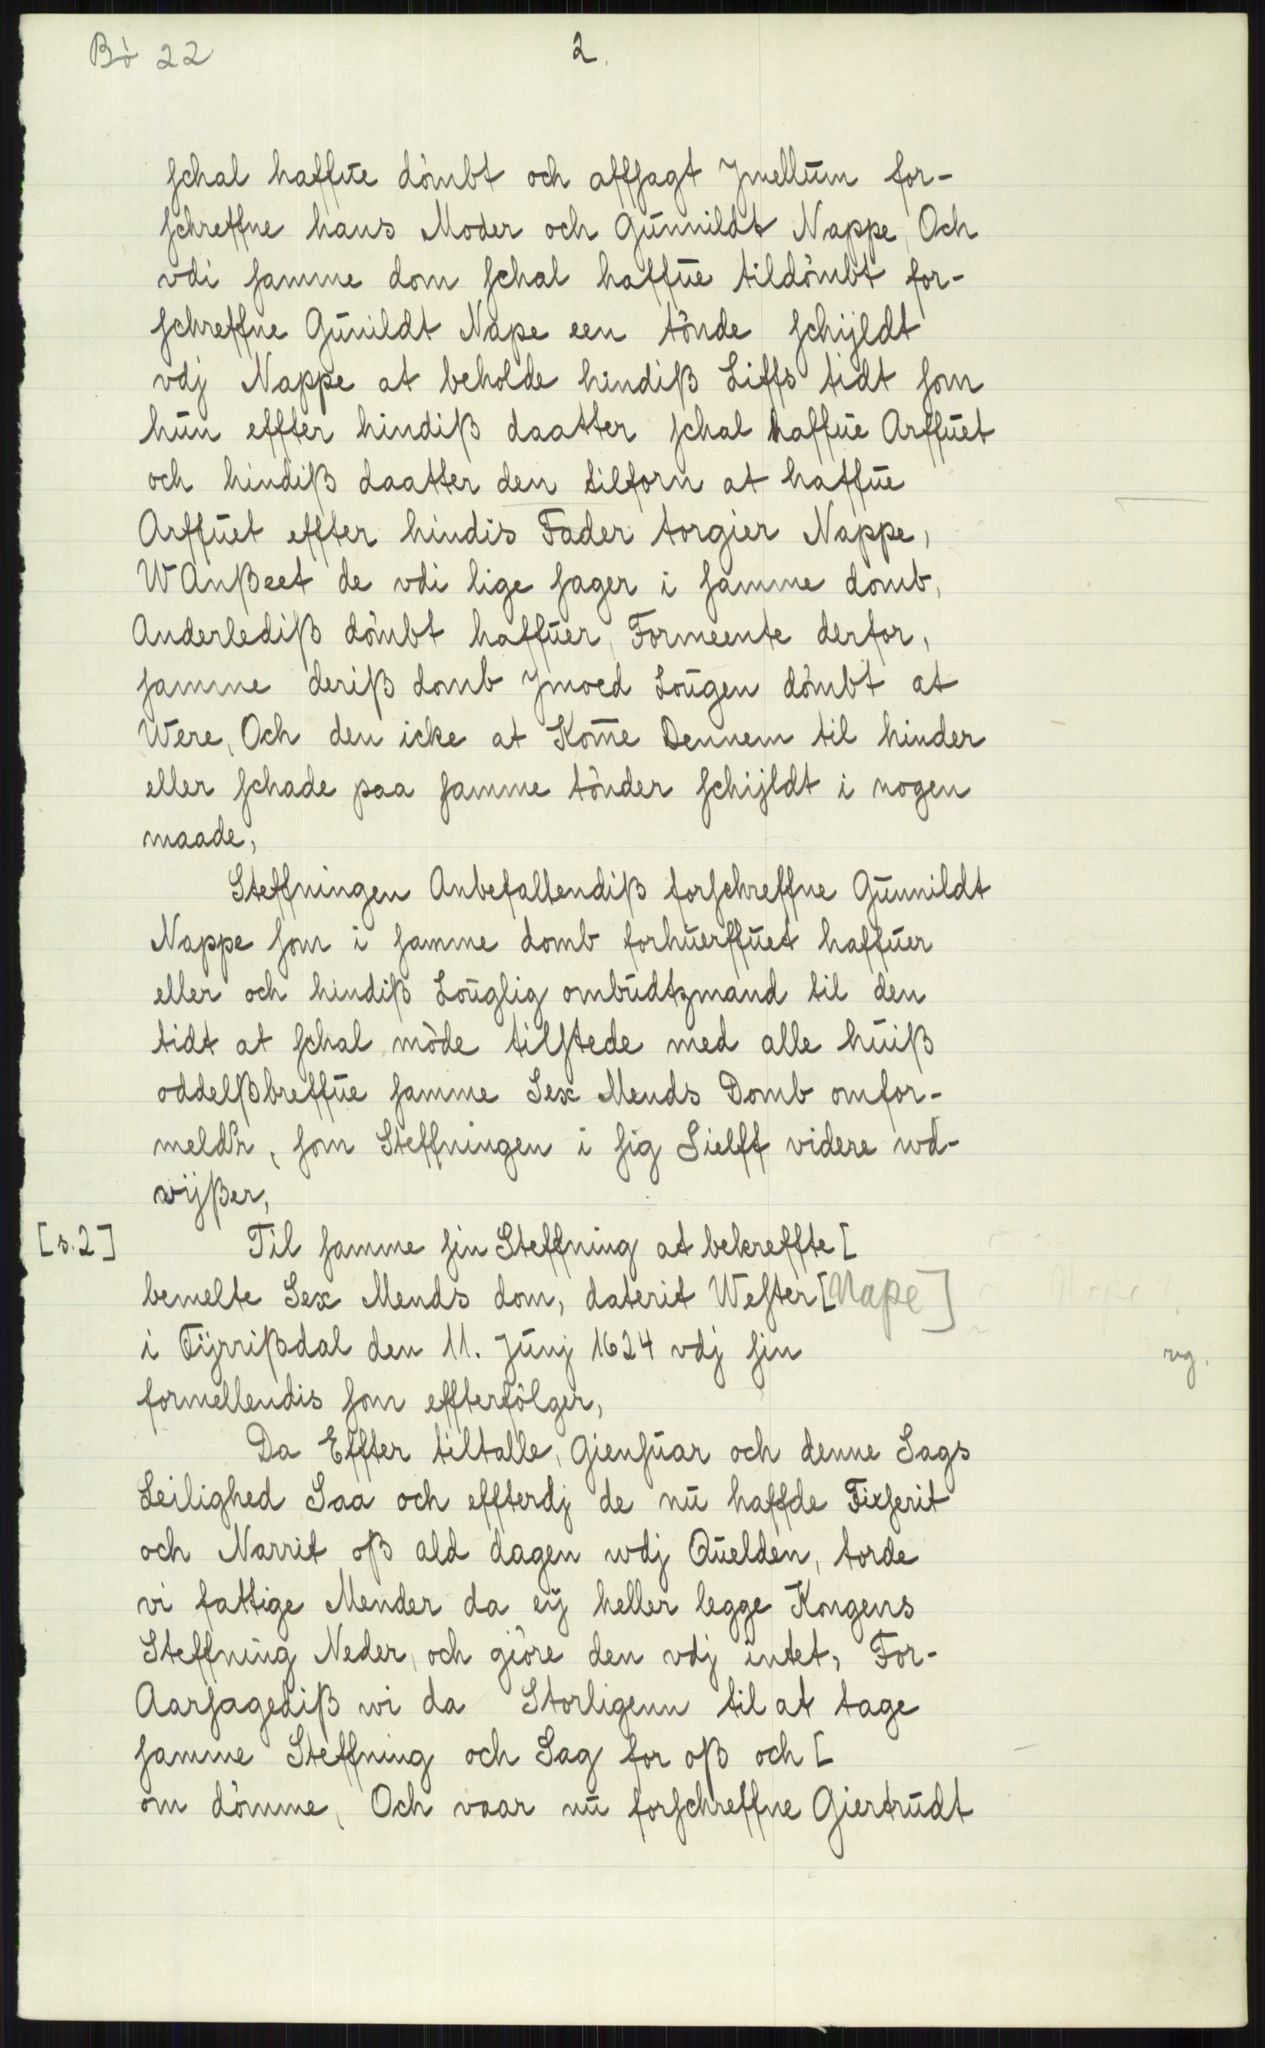 Bö 22
2.
schal haffue dömbt och affsagt Jmellum for-
schreffne hans Moder och Gunnildt Nappe, Och
vdi samme dom schal haffue tildömbt for-
schreffne Gunildt Nape een tönde schijldt
vdj Nappe at beholde hindiß Liffs tidt som
hun effter hindiß daatter schal haffue Arffuet
och hindiß daatter den tilforn at haffue
Arffuet effter hindis Fader torgier Nappe,
WAnßeet de vdi lige sager i samme domb,
Anderlediß dömbt haffuer, Formeente derfor,
samme deriß domb Jmoed Lougen dömbt at
Were, Och den icke at Kom̅e Dennem til hinder
eller schade paa samme tönder schijldt i nogen
maade,
Steffningen Anbefallendiß forschreffne Gunnildt
Nappe som i samme domb forhuerffuet haffuer
eller och hindiß Louglig ombudtzmand til den
tidt at schal möde tilstede med alle huiß
oddelßbreffue samme Sex Mends Domb omfor-
meld'r, som Steffningen i sig Sielff videre wd-
vijßer,
[s.2] Til samme sin Steffning at bekreffte [
bemelte Sex Mends dom, daterit Wester [Nape]
i Tijrrißdal den 11. Junj 1624 vdj sin
formellendis som effterfölger,
Da Effter tiltalle, Giensuar och denne Sags
Leilighed Saa och effterdj de nu haffde Fixserit
och Narrit oß ald dagen wdj Quelden, torde
vi fattige Mender da eij heller legge Kongens
Steffning Neder, och giöre den vdj intet, For-
Aarsagediß wi da Storligenn til at tage
samme Steffning och Sag for oß och [
om dömme, Och vaar nu forschreffne Giertrudt